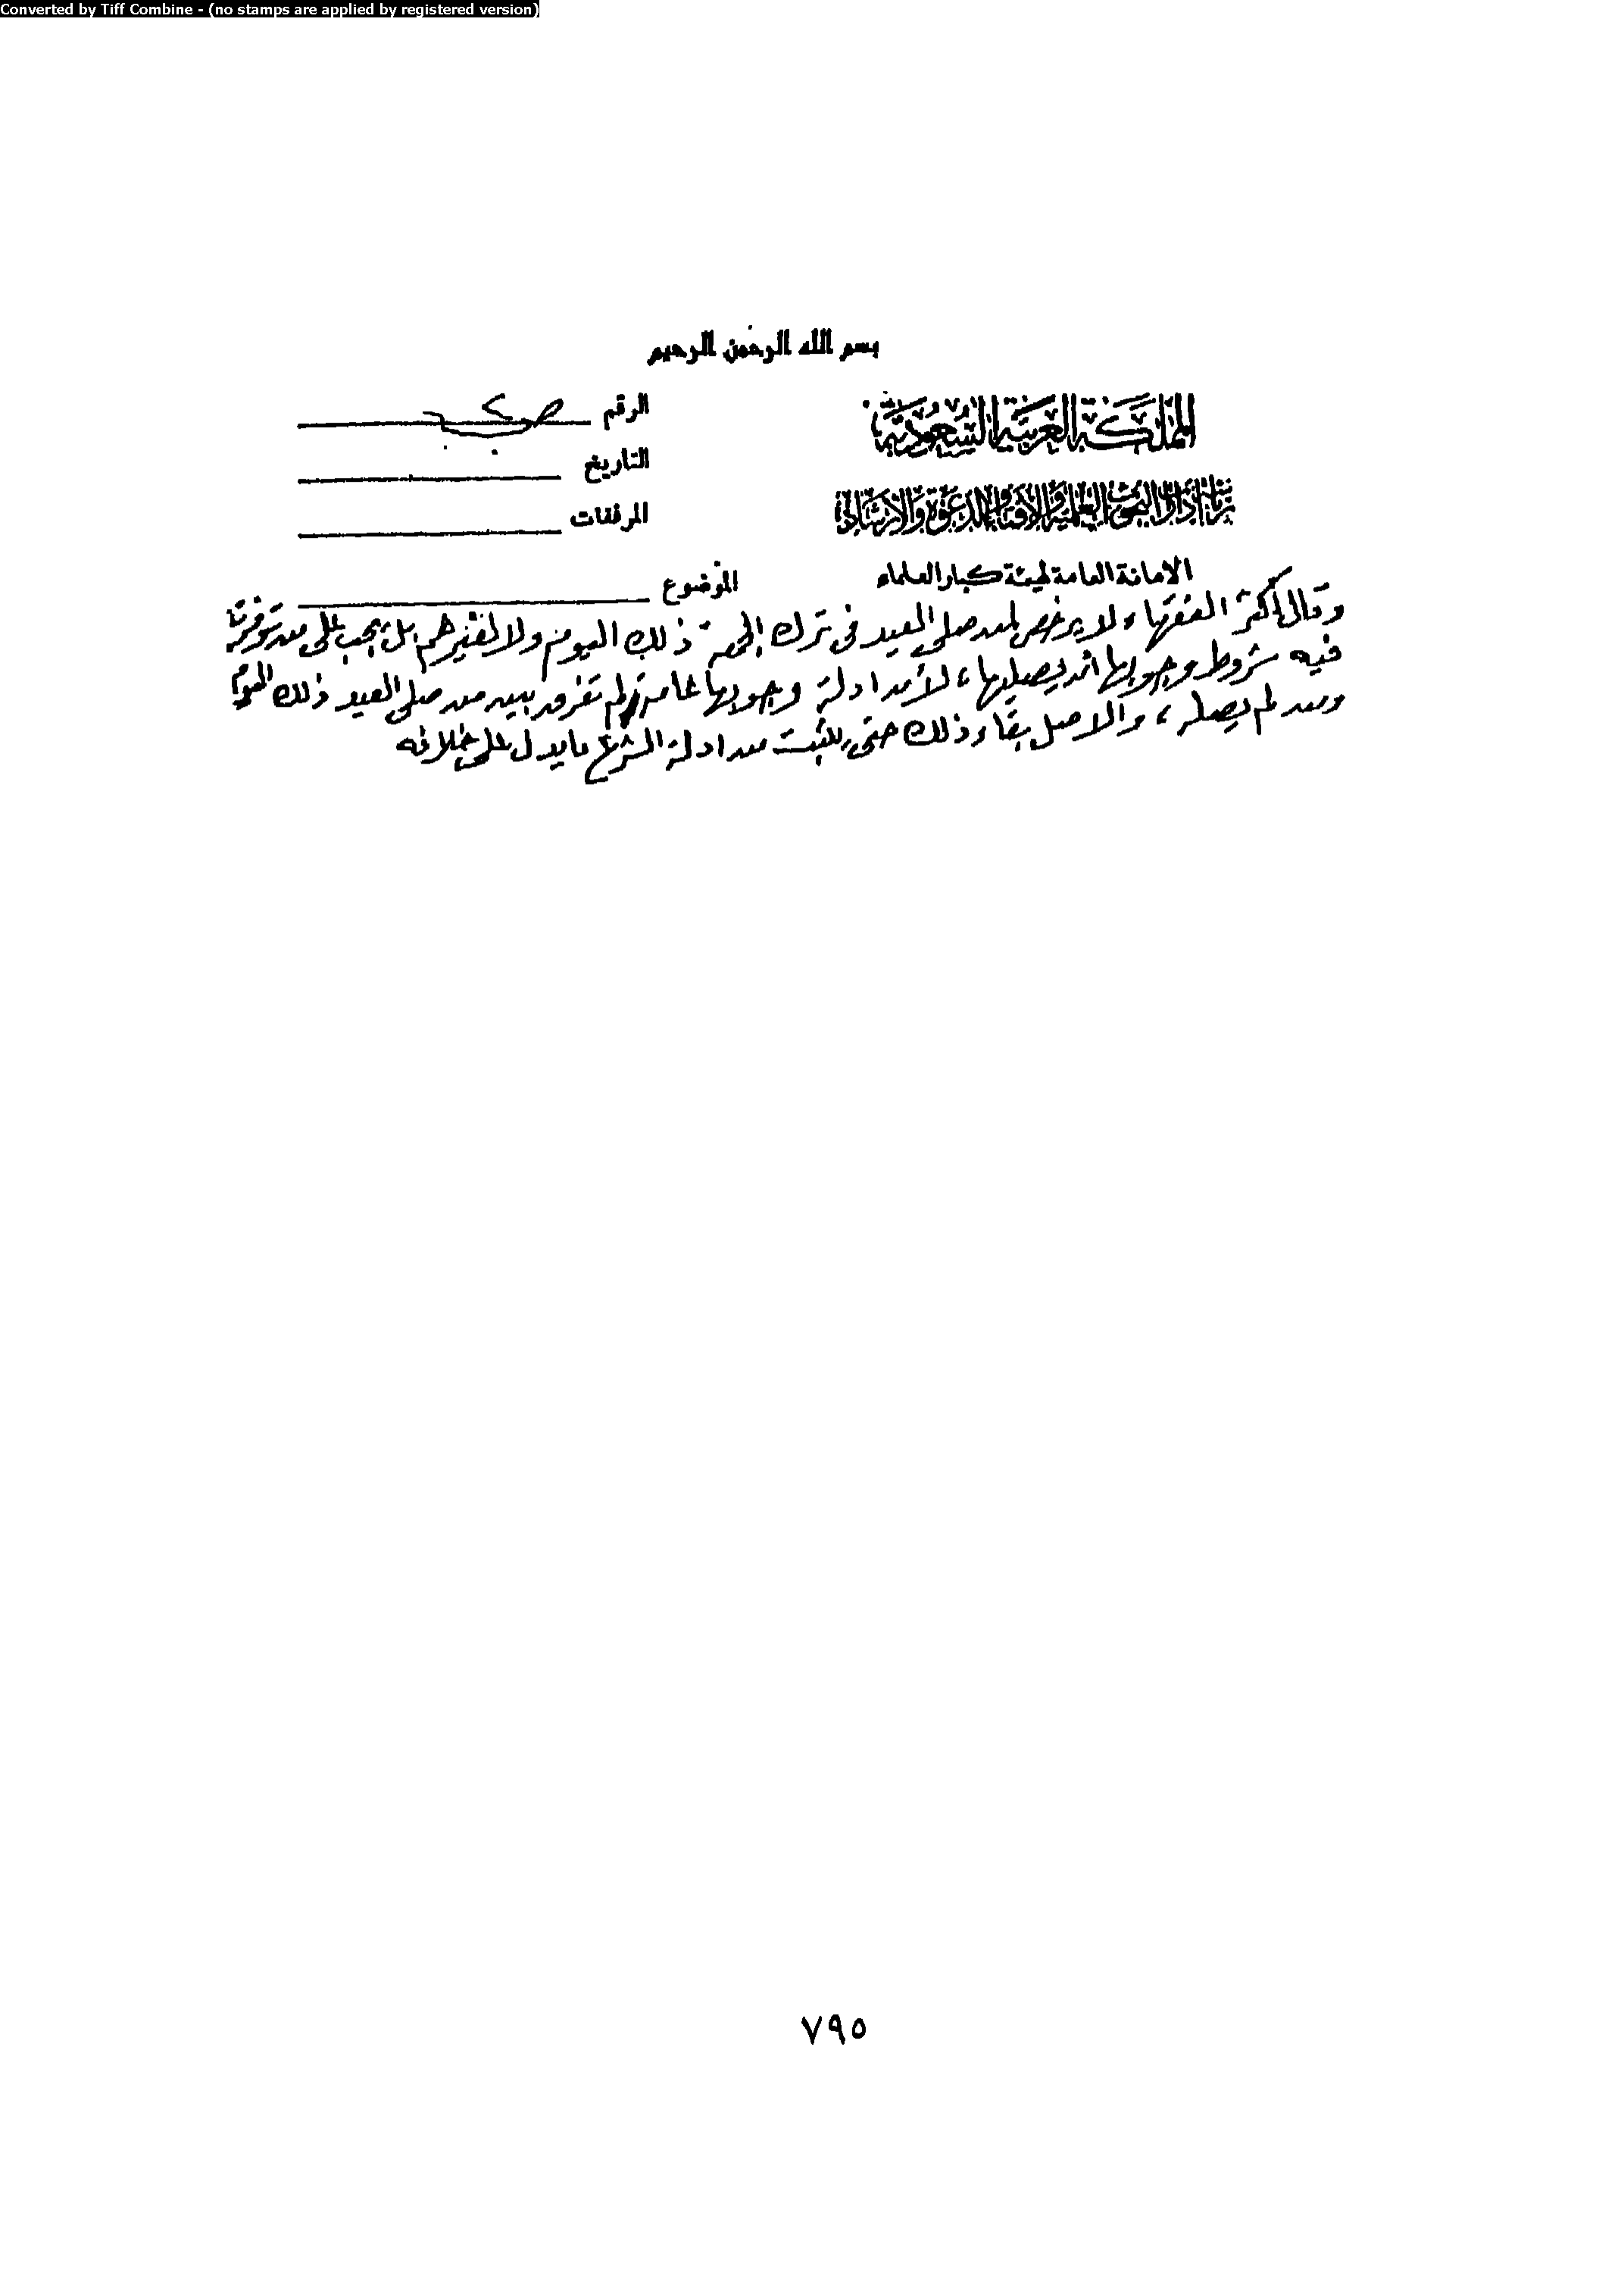 Converted by Tiff Combine - (no stamps are applied by registered version)
بسم الله الرحمن الرحيم
المملكة العربية السعودية
رئاسة إدارات البحوث العلمية والافتاء والدعوة والارشاد
الامانة العامة لهيئة كبار العلماء
الرقم
التاريخ
المرفقات
الموضوع
وقال اكثر الفقهاء ولا يرخص لمن صلى العيد فى ترك الجمعة ذلك اليوم ولا لغيرهم بل يجب على من توفرت
فيه شروط وجوبها ان يصليها، لأن ادلة وجوبها عامة لم تفرق بين من صلى العيد ذلك اليوم
ومن لم يصله، والاصل بقاء ذلك حتى يثبت من ادلة الشرع ما يدل على خلافه
٧٩٥